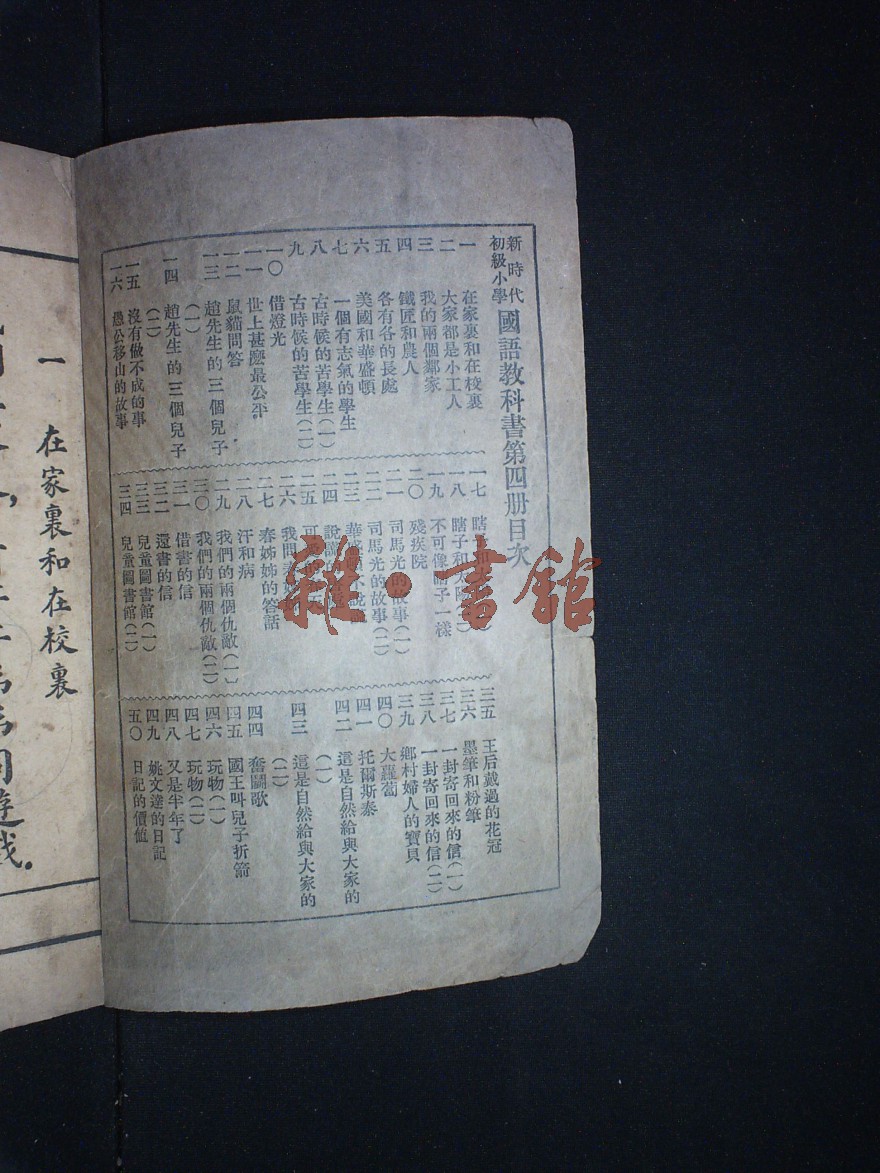 新時代
初級小學
國語教科書第四册目次
一 在家裏和在校裏
二 大家都是小工人
三 我的兩個鄰家
四 鐵匠和農人
五 各有各的長處
六 美國和華盛頓
七 一個有志氣的學生
八 古時候的苦學生(一)
九 古時候的苦學生(二)
一〇 借燈光
一一 世上甚麽最公平
一二 鼠貓問答
一三 趙先生的三個兒子(一)
一四 趙先生的三個兒子(二)
一五 沒有做不成的事
一六 愚公移山的故事
一七 瞎
一八 瞎子和
一九 不可像瞎子一樣
二〇 殘疾院
二一 司馬光的故事(一)
二二 司馬光的故事(二)
二三 華盛頓不說
二四 說謊的
二五 可
二六 我問
二七 春姊姊的答話
二八 汗和病
二九 我們的兩個仇敵(一)
三〇 我們的兩個仇敵(二)
三一 借書的信
三二 還書的信
三三 兒童圖書館(一)
三四 兒童圖書館(二)
三五 王后戴過的花冠
三六 墨筆和粉筆
三七 一封寄回來的信(一)
三八 一封寄回來的信(二)
三九 鄉村婦人的寶貝
四〇 大蘿蔔
四一 托爾斯泰
四二 這是自然給與大家的(一)
四三 這是自然給與大家的(二)
四四 奮鬭歌
四五 國王叫兒子折箭
四六 玩物(一)
四七 玩物(二)
四八 又是半年了
四九 姚文達的日記
五〇 日記的價值
雜·書館
一 在家裏和在校裏
同遊戲.